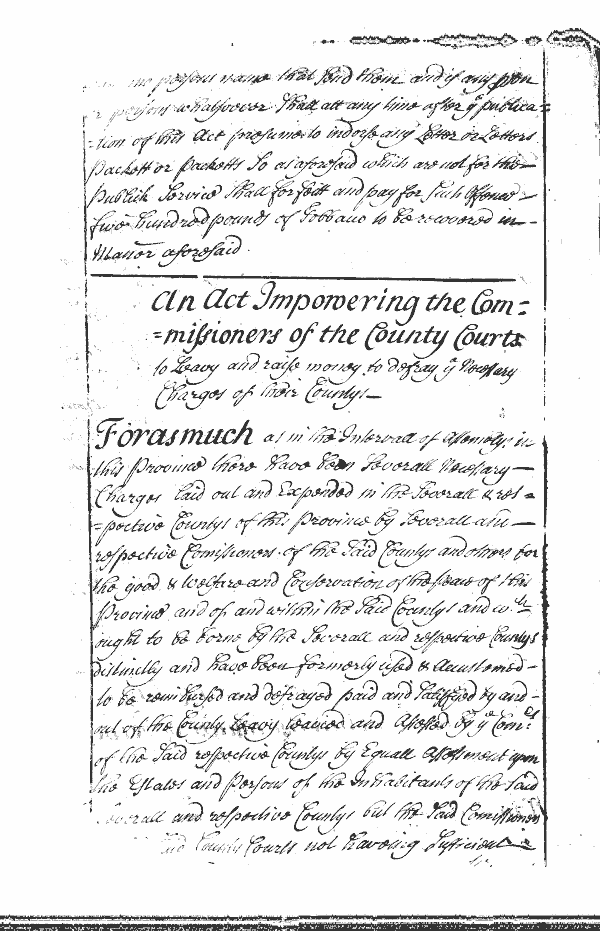 no persons name that send them and if any pson
persons whatsoever shall att any time after ye publica=
=tion of this Act presume to indorse any Letter or Letters
Packett or Packetts So as aforesaid which are not for the
Publick Service Shall forfeit and pay for Such Offence
five hundred pounds of Tobbacco to be recovered in
Manor aforesaid
An Act Impowering the Com=
=missioners of the County Courts
to Leavy and raise money to defray ye Necessary
Charges of their Countys
Forasmuch as in the Intervall of Assemblys in
this Province there have been Severall Necessary
Charges laid out and Expended in the Severall & res=
=pective Countys of this Province by Severall and
respective Comissioners of the Said Countys and others for
the good & Welfare and Conservation of the peace of this
Province and of and within the Said Countys and wch
ought to be borne by the Severall and respective Countys
distinctly and have been formerly used & Accustomed
to be reimbursed and defrayed paid and Satisfyed by and
out of the County Leavy leavied and Assessed by ye Comrs
of the Said respective Countys by Equall Assessment upon
the Estates and Persons of the Inhabitants of the Said
Severall and respective Countys but the Said Comissioners
Said County Courts not haveing Sufficient